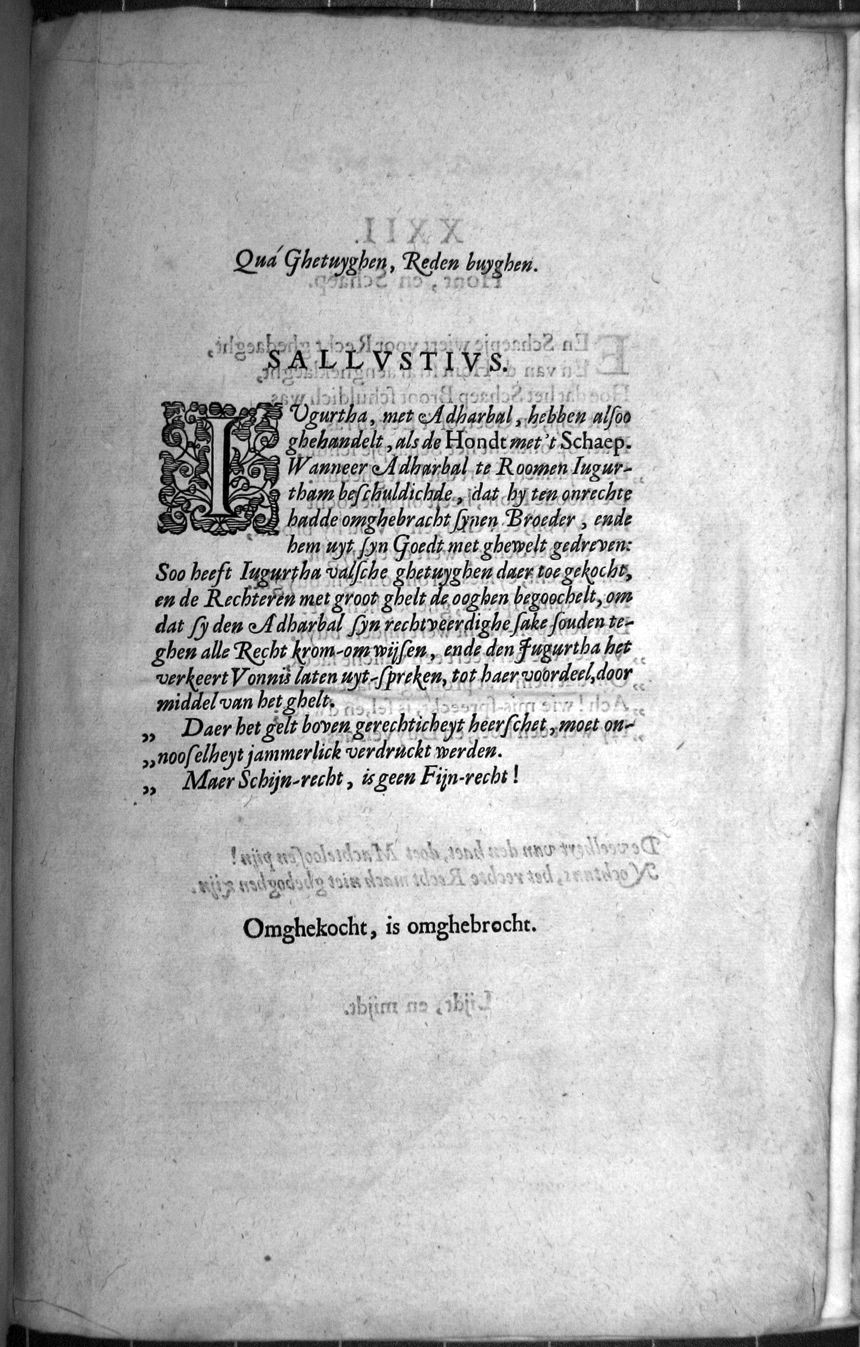 Quá Ghetuyghen, Reden buyghen.
SALLVSTIVS.
IVgurtha, met Adharbal, hebben alſoo
ghehandelt, als de Hondt met 't Schaep.
Wanneer Adharbal te Roomen Iugur-
tham beſchuldichde, dat hy ten onrechte
hadde omghebracht ſynen Broeder, ende
hem uyt ſyn Goedt met ghewelt gedreven:
Soo heeft Iugurtha valſche ghetuyghen daer toe gekocht,
en de Rechteren met groot ghelt de ooghen begoochelt, om
dat ſy den Adharbal ſyn rechtveerdighe ſake ſouden te-
ghen alle Recht krom-om wijſen, ende den Jugurtha het
verkeert Vonnis laten uyt-ſpreken, tot haer voordeel, door
middel van het ghelt.
„ Daer het gelt boven gerechticheyt heerſchet, moet on-
„ nooſelheyt jammerlick verdruckt werden.
„ Maer Schijn-recht, is geen Fijn-recht!
Omghekocht, is omghebrocht.